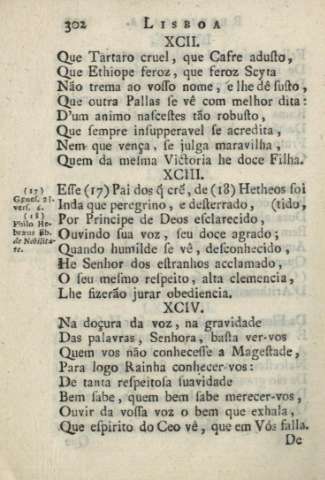 302 LISBOA
XCII.
Que Tartaro cruel, que Cafre adusto,
Que Ethiope feroz, que feroz Scyta
Não trema ao vosso nome, e lhe dê susto,
Que outra Pallas se vê com melhor dita:
D'um animo nascestes tão robusto,
Que sempre insupperavel se acredita,
Nem que vença, se julga maravilha,
Quem da mesma Victoria he doce Filha.
XCIII.
Esse (17) Pai dos q̃ crê, de (18) Hetheos foi
Inda que peregrino, e desterrado, (tido,
Por Principe de Deos esclarecido,
Ouvindo sua voz, seu doce agrado;
Quando humilde se vê, desconhecido,
He Senhor dos estranhos acclamado,
O seu mesmo respeito, alta clemencia,
Lhe fizerão jurar obediencia.
(17)
Genes. 23.
vers. 6.
(18)
Philo He-
bræus lib.
de Nobilita-
te.
XCIV.
Na doçura da voz, na gravidade
Das palavras, Senhora, basta ver-vos
Quem vos não conhecesse a Magestade,
Para logo Rainha conhecer-vos:
De tanta respeitosa suavidade
Bem sabe, quem bem sabe merecer-vos,
Ouvir da vossa voz o bem que exhala,
Que espirito do Ceo vê, que em Vós falla.
De